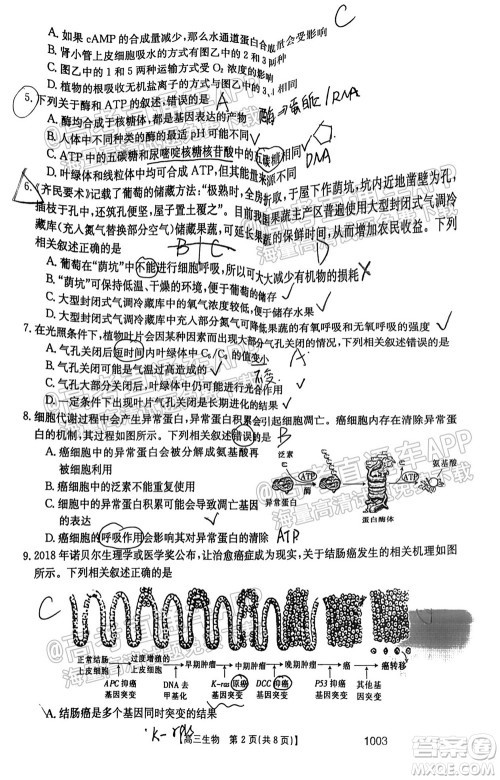 C
A. 如果 cAMP 的合成量减少,那么水通道蛋白合成量会受影响
B. 肾小管上皮细胞吸水的方式有图乙中的 2 和 3 两种
C. 图乙中的 1 和 5 两种运输方式受 O₂ 浓度的影响
D. 植物的根吸收无机盐离子的方式与图乙中的 4 相同
5. 下列关于酶和 ATP 的叙述,错误的是 A
酶→蛋白质/RNA
A. 酶均合成于核糖体,都是基因表达的产物
B. 人体中不同种类的酶的最适 pH 可能不同✓
C. ATP 中的五碳糖和尿嘧啶核糖核苷酸中的五碳糖相同✓
DNA
6. 《齐民要术》记载了葡萄的储藏方法:“极熟时,全房折取,于屋下作荫坑,坑内近地凿壁为孔,
插枝于孔中,还筑孔使坚,屋子置土覆之”。目前我国果蔬主产区普遍使用大型封闭式气调冷
藏库(充入氮气替换部分空气)储藏果蔬,可延长果蔬的保鲜时间,从而增加农民收益。下列
相关叙述正确的是 B C D
A. 葡萄在“荫坑”中不能进行细胞呼吸,所以可大大减少有机物的损耗 ×
B. “荫坑”中的低温、干燥的环境,可以延长葡萄的储存✓
C. 大型封闭式气调冷藏库中的低温环境,有利于果蔬的储存✓
D. 大型封闭式气调冷藏库中充入部分氮气可降低果蔬的有氧呼吸和无氧呼吸的强度✓
7. 在光照条件下,植物叶片气孔会因某种因素而关闭。关于叶片气孔关闭的情况,下列叙述错误的是
A
A. 气孔关闭后短时间内叶绿体中 C₅/C₃ 的值变小
不变
B. 气孔关闭可能是环境温度过高造成的✓
C. 气孔关闭后短时间内叶绿体中
D. 一定条件下出现叶片气孔关闭现象有利于植物的长期进化✓
8. 细胞代谢过程中会产生异常蛋白,异常蛋白积累会引起细胞凋亡。癌细胞内存在清除异常蛋
白的机制,其过程如图所示。下列相关叙述错误的是 B
A. 癌细胞中的异常蛋白会被分解成氨基酸再
被细胞利用
B. 正常细胞不能大量增殖是因为异常蛋白不
能被清除
C. 癌细胞中的异常蛋白会影响其凋亡基因
的表达✓
D. 癌细胞的呼吸作用会影响其对异常蛋白的清除 ATP
泛素
异常蛋白
ATP
酶
泛素
ATP
蛋白酶体
氨基酸
9. 2018 年诺贝尔生理学或医学奖公布,让治愈癌症成为现实,关于结肠癌发生的相关机理如图
所示。下列相关叙述正确的是
C
正常结肠上皮细胞→过度增殖的上皮细胞→早期肿瘤→中期肿瘤→晚期肿瘤→癌→癌转移
APC 抑癌基因突变
DNA 去甲基化
K-ras 原癌基因突变
DCC 抑癌基因突变
P53 抑癌基因突变
其他基因突变
A. 结肠癌是多个基因同时突变的结果
K-ras
高三生物 第 2 页(共 8 页)
1003